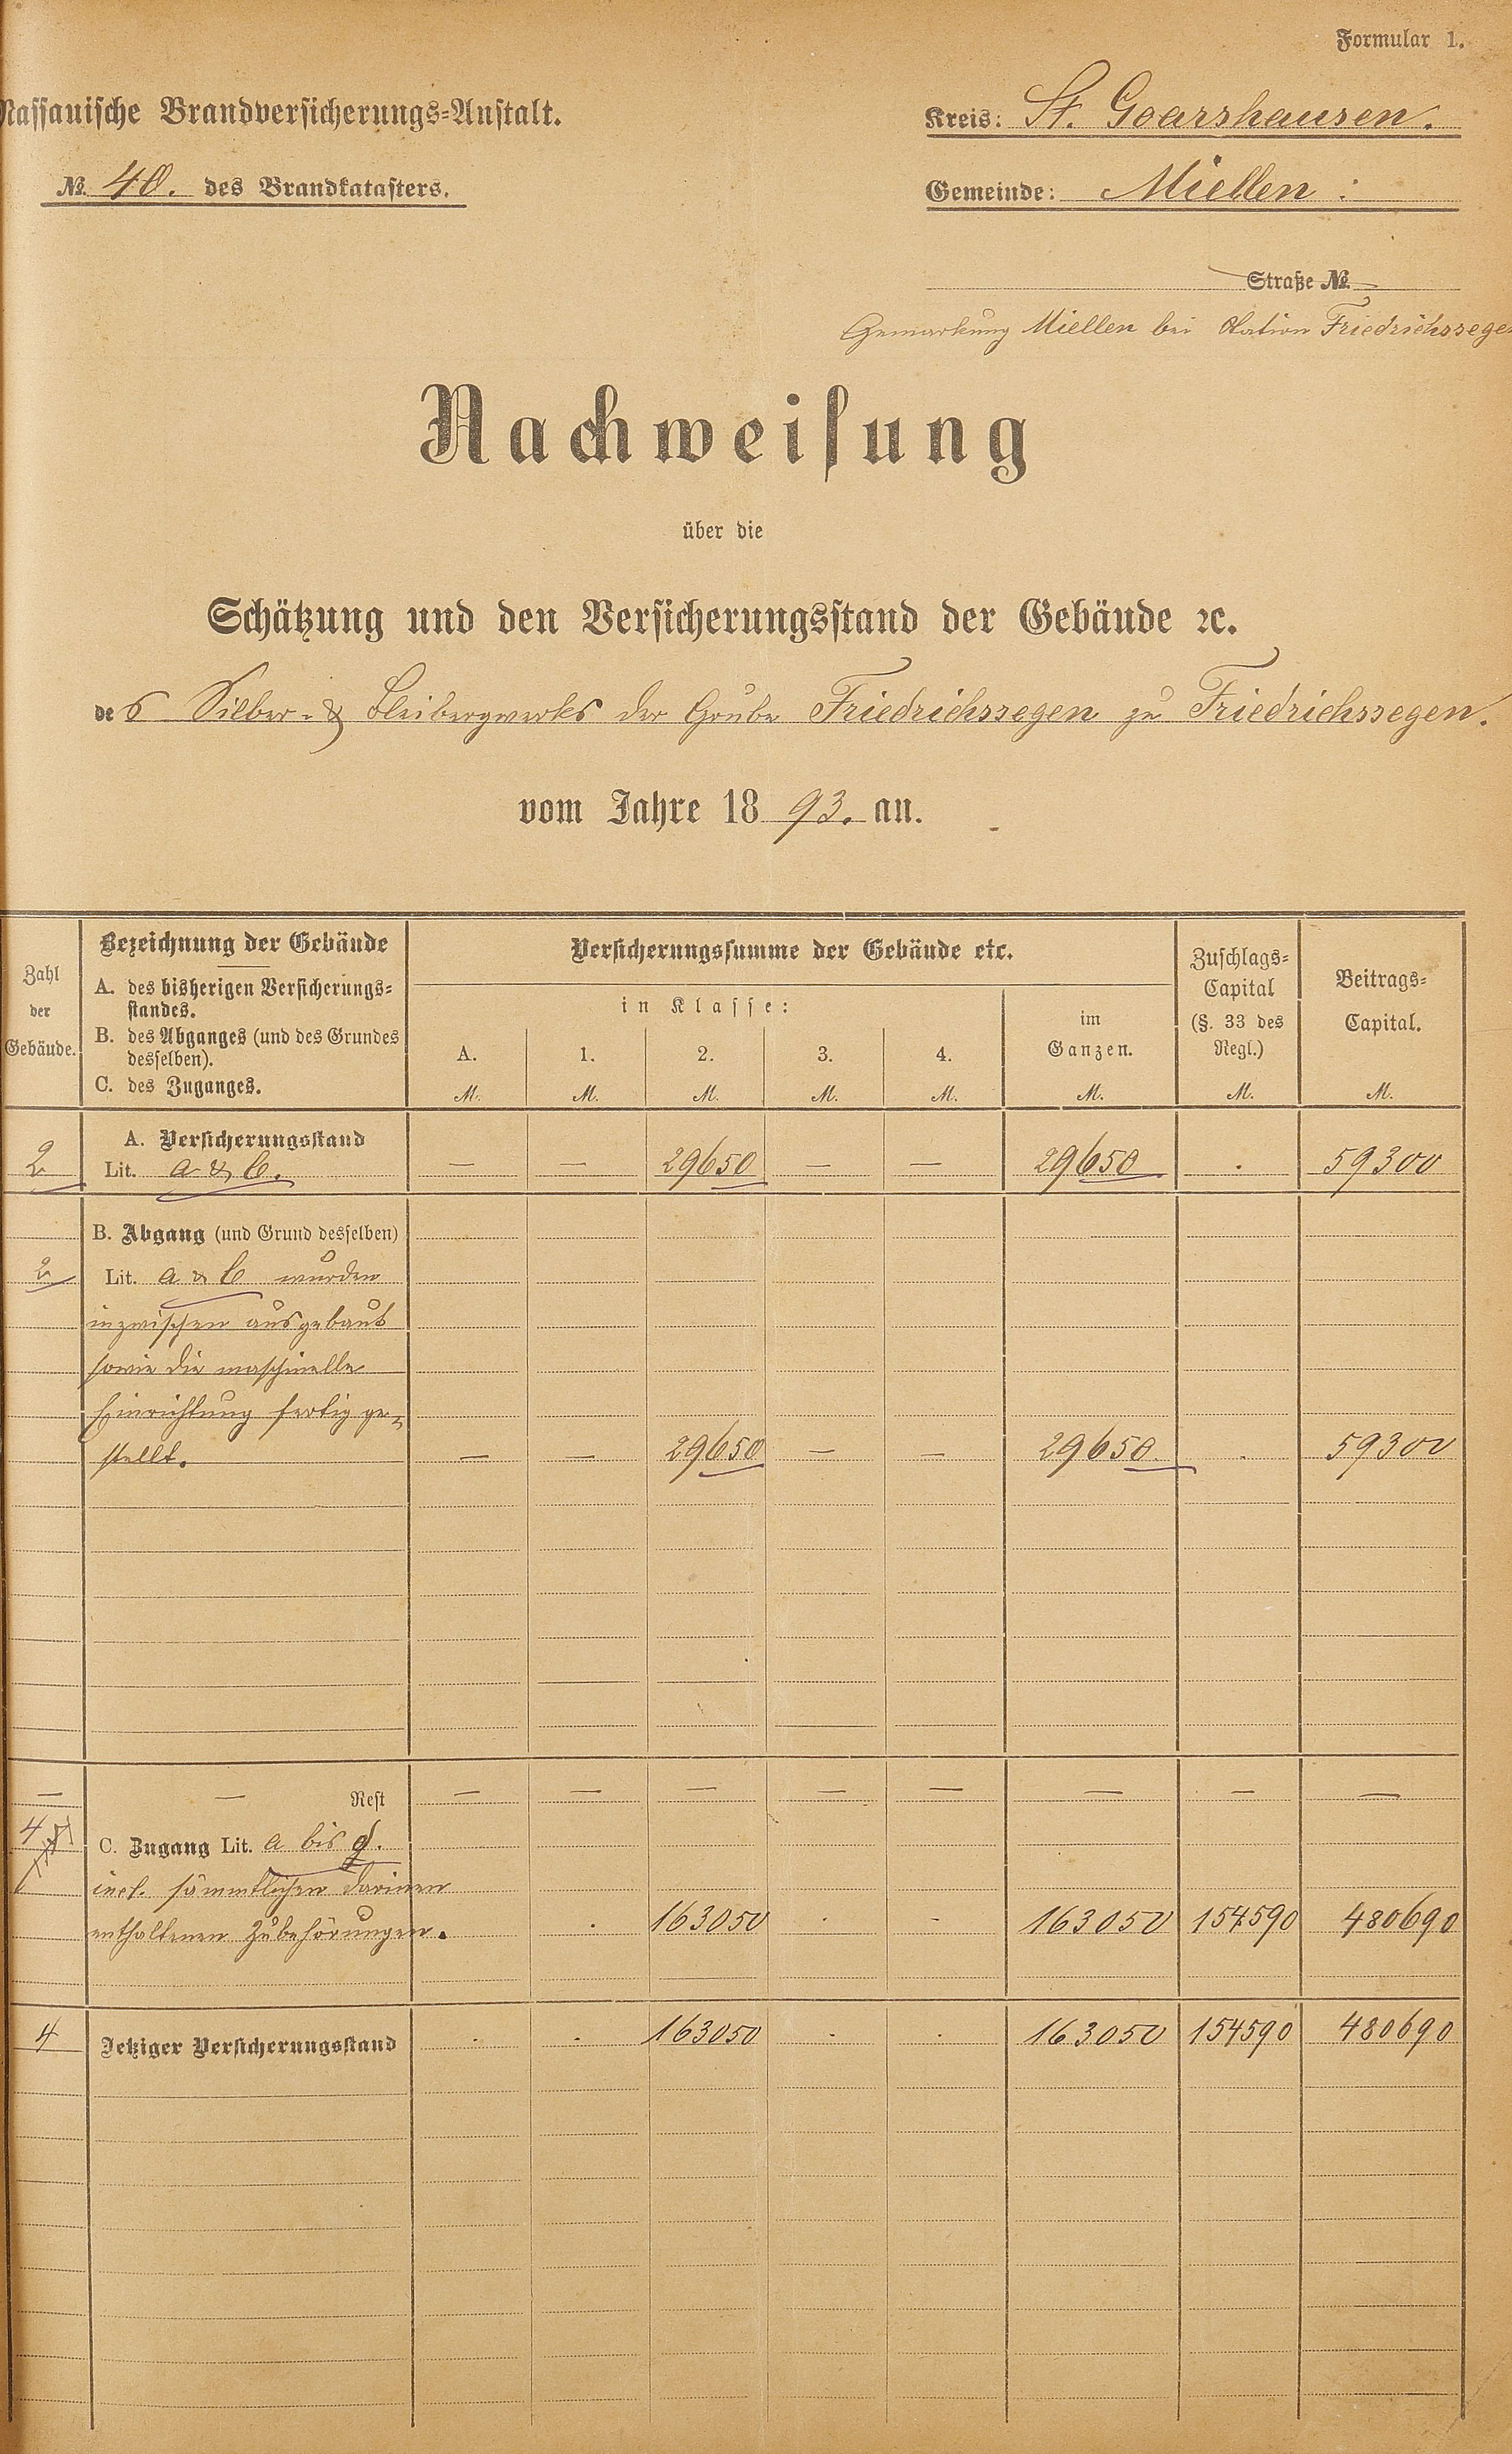 Formular 1.
Nassauische Brandversicherungs-Anstalt.
Kreis: St. Goarshausen.
№ 40. des Brandkatasters.
Gemeinde: Miellen :
Straße №
Gemarkung Miellen bei Station Friedrichssege
Nachweisung
über die
Schätzung und den Versicherungsstand der Gebäude ꝛc.
des Silber- & Bleibergwerks der Grube Friedrichssegen zu Friedrichssegen.
vom Jahre 1893. an.
Zahl der Gebäude.
Bezeichnung der Gebäude
A. des bisherigen Versicherungs-
standes.
B. des Abganges (und des Grundes
desselben).
C. des Zuganges.
Versicherungssumme der Gebäude etc.
in Klasse:
A. 1. 2. 3. 4.
M. M. M. M. M.
im
Ganzen.
M.
Zuschlags-
Capital
(§. 33 des
Regl.)
M.
Beitrags-
Capital.
M.
A. Versicherungsstand
2 Lit. a & b. — — 29650 — — 29650 . 59300
B. Abgang (und Grund desselben)
2 Lit. a & b wurden
inzwischen ausgebaut
sowie die maschinelle
Einrichtung fertig ge-
stellt. — — 29650 — — 29650 . 59300
— — Rest — — — — — — — —
4 C. Zugang Lit. a bis d.
incl. sämmtlichen darinnen
enthaltenen Zubehörungen. . 163050 . - 163050 154590 480690
4 Jetziger Versicherungsstand . . 163050 . . 163050 154590 480690